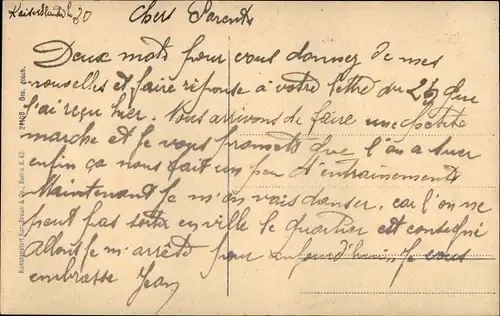 Kaiserslautern 30
Chers Parents
Deux mots pour vous donner de mes
nouvelles et faire réponse à votre lettre du 25 que
j'ai reçu hier. Nous arrivons de faire une petite
marche et je vous promets que l'on a suer
enfin ça nous fait un peu d'entrainements
Maintenant je m'en vais danser, car l'on ne
peut pas sortir en ville le quartier est consigné
allons je m'arrête pour aujourd'hui, Je vous
embrasse Jean